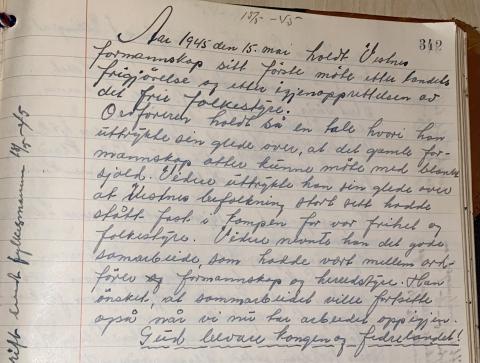 15/5 - 45
342
Aar 1945 den 15. mai holdt Vestnes
formannskap sitt förste möte etter landets
frigjörelse og etter igjenopprettelsen av
det frie folkestyre.
Ordföreren holdt så en tale hvori han
uttrykte sin glede over, at det gamle for-
mannskap atter kunne möte med blanke
skjold. Videre uttrykte han sin glede over
at Vestnes befolkning stort sett hadde
stått fast i kampen for vår frihet og
folkestyre. Videre nevnte han det gode
samarbeide, som hadde vært mellem ord-
förer og formannskap og herredstyre. Han
önsket, at sammarbeidet ville fortsette
også når vi nu tar arbeidet opp igjen.
Gud bevare kongen og fedrelandet!